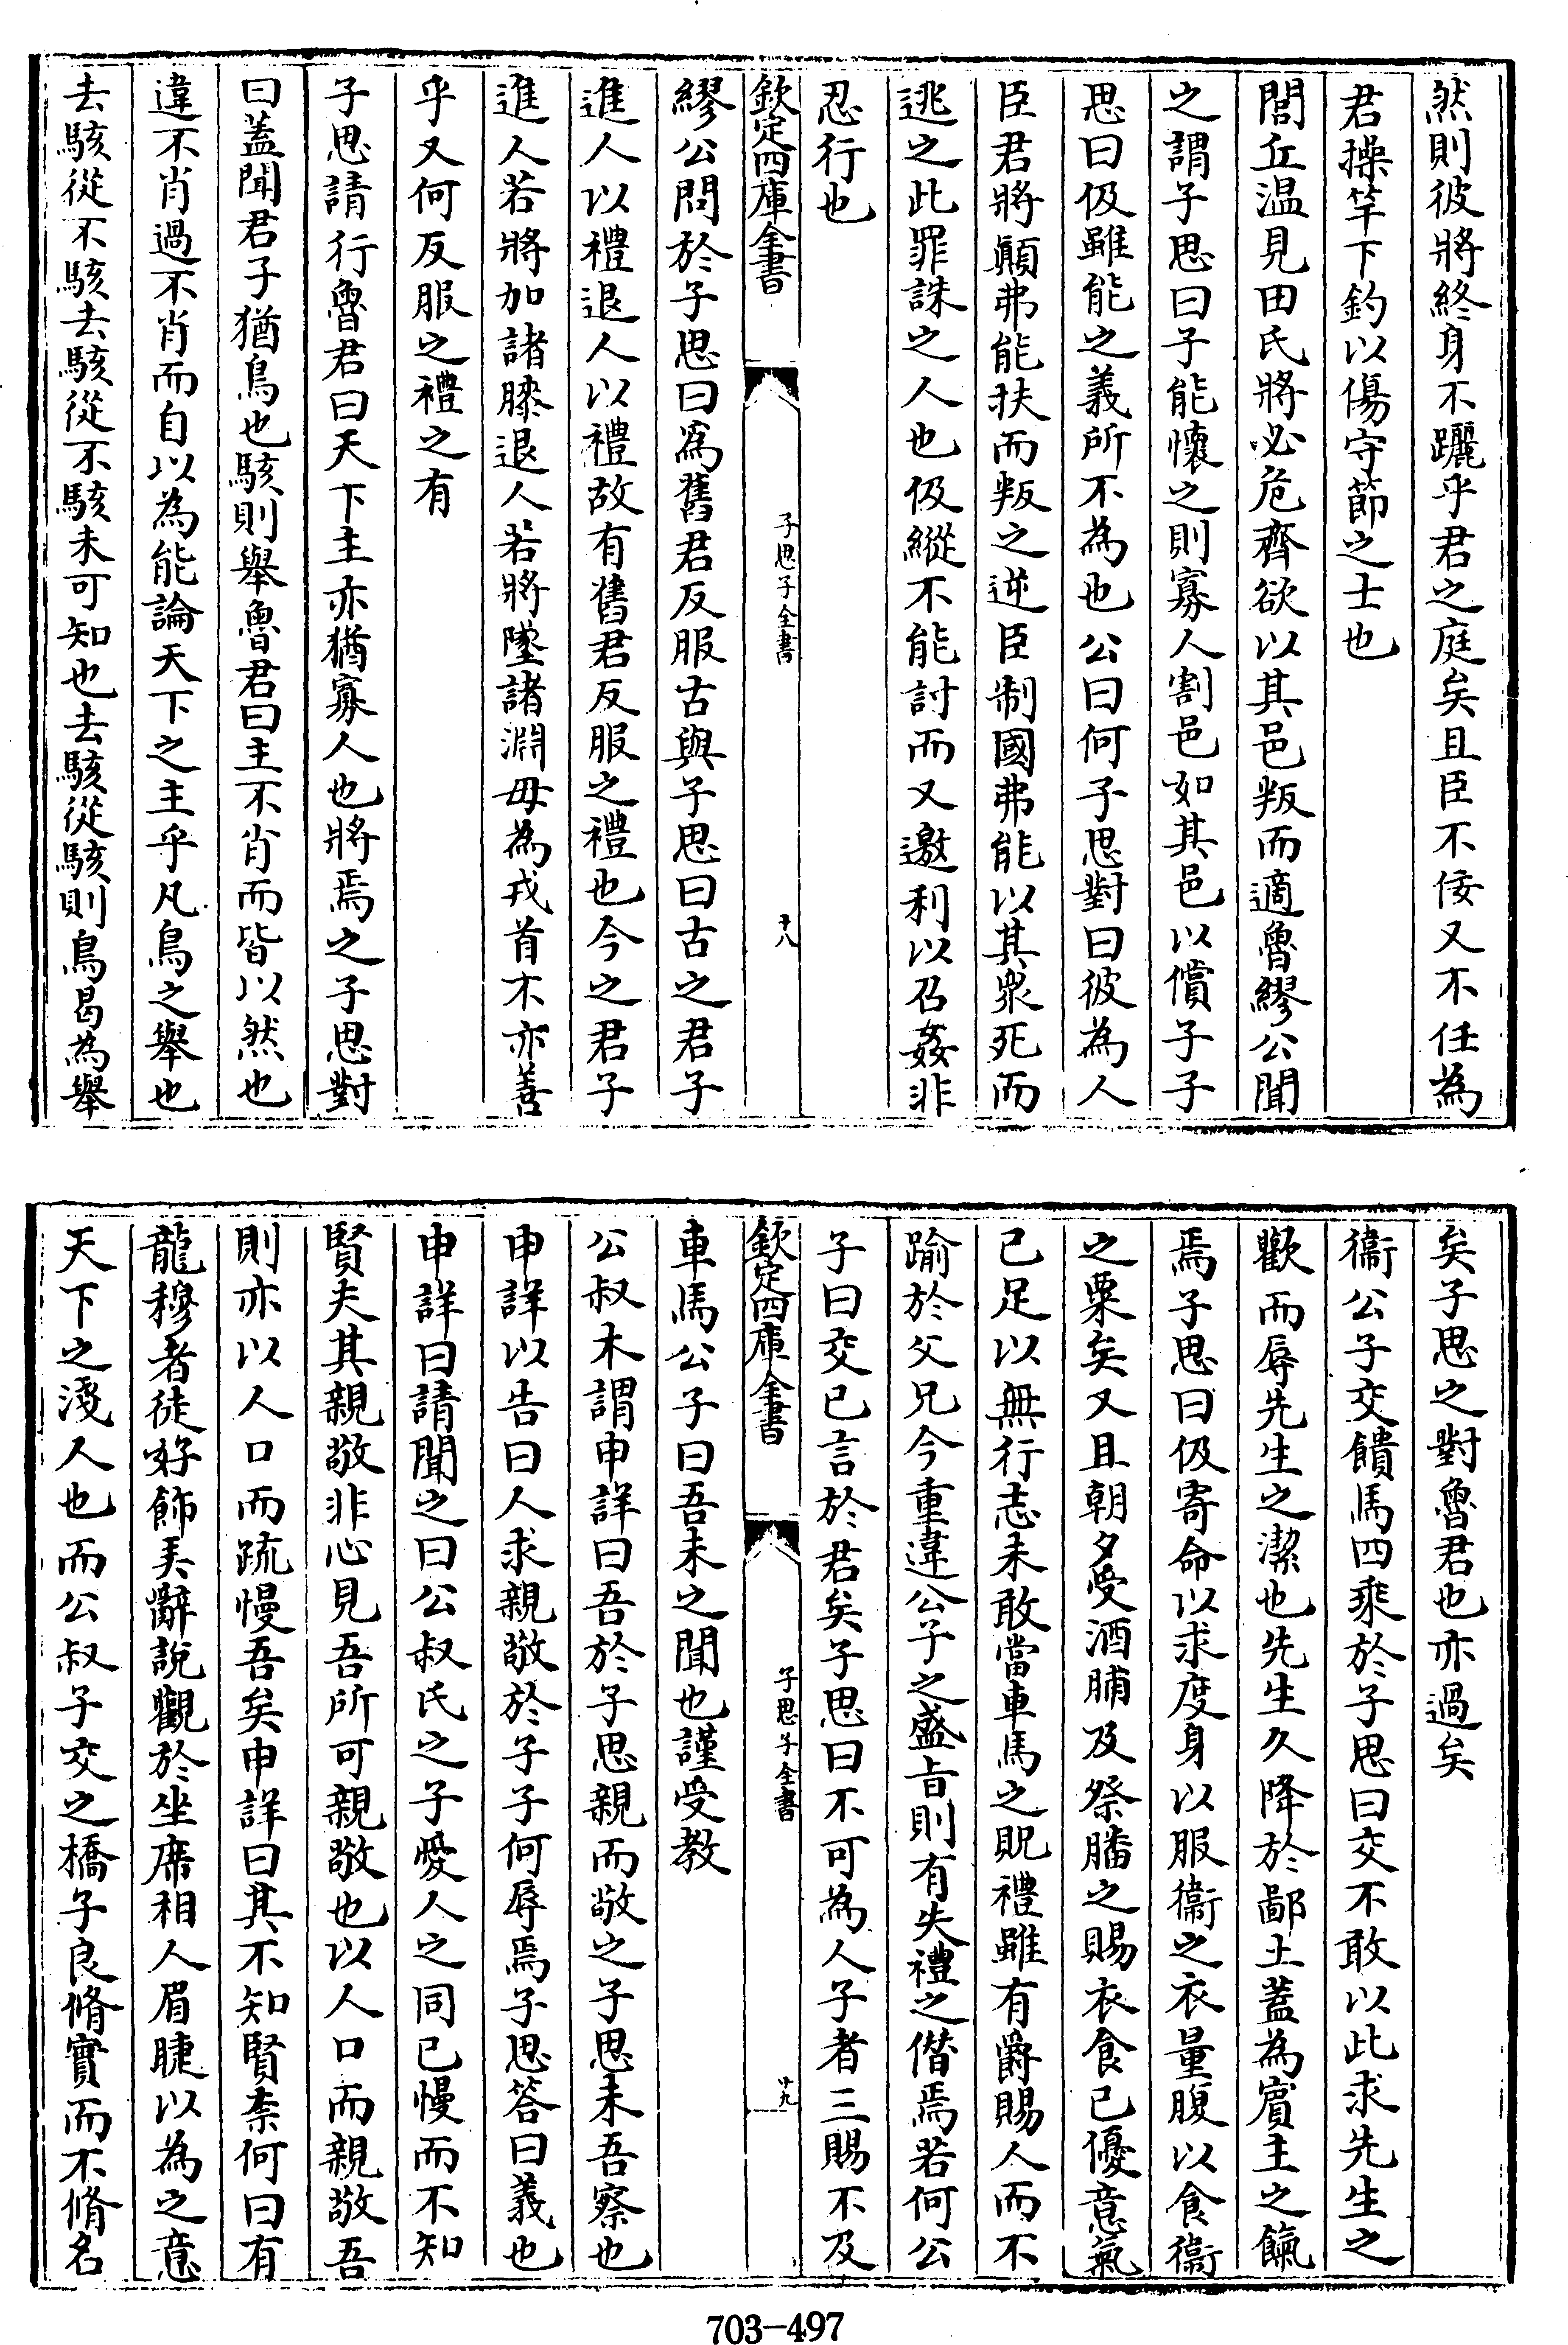 然則彼將終身不躧乎君之庭矣且臣不佞又不任為
君操竿下釣以傷守節之士也
閭丘温見田氏將必危齊欲以其邑叛而適魯繆公聞
之謂子思曰子能懷之則寡人割邑如其邑以償子子
思曰伋雖能之義所不為也公曰何子思對曰彼為人
臣君將顛弗能扶而叛之逆臣制國弗能以其衆死而
逃之此罪誅之人也伋縱不能討而又邀利以召姦非
忍行也
欽定四庫全書
子思子全書
十八
繆公問於子思曰為舊君反服古與子思曰古之君子
進人以禮退人以禮故有舊君反服之禮也今之君子
進人若將加諸膝退人若將墜諸淵毋為戎首不亦善
乎又何反服之禮之有
子思請行魯君曰天下主亦猶寡人也將焉之子思對
曰蓋聞君子猶鳥也駭則舉魯君曰主不肖而皆以然也
違不肖過不肖而自以為能論天下之主乎凡鳥之舉也
去駭從不駭去駭從不駭未可知也去駭從駭則鳥曷為舉
矣子思之對魯君也亦過矣
衞公子交饋馬四乘於子思曰交不敢以此求先生之
歡而辱先生之潔也先生久降於鄙土蓋為賓主之餼
焉子思曰伋寄命以求度身以服衞之衣量腹以食衞
之粟矣又且朝夕受酒脯及祭膰之賜衣食已優意氣
已足以無行志未敢當車馬之貺禮雖有爵賜人而不
踰於父兄今重違公子之盛旨則有失禮之僭焉若何公
子曰交已言於君矣子思曰不可為人子者三賜不及
欽定四庫全書
子思子全書
十九
車馬公子曰吾未之聞也謹受教
公叔木謂申詳曰吾於子思親而敬之子思未吾察也
申詳以告曰人求親敬於子子何辱焉子思答曰義也
申詳曰請聞之曰公叔氏之子愛人之同已慢而不知
賢夫其親敬非心見吾所可親敬也以人口而親敬吾
則亦以人口而疏慢吾矣申詳曰其不知賢柰何曰有
龍穆者徒好飾美辭說觀於坐席相人眉睫以為之意
天下之淺人也而公叔子交之橋子良脩實而不脩名
703-497